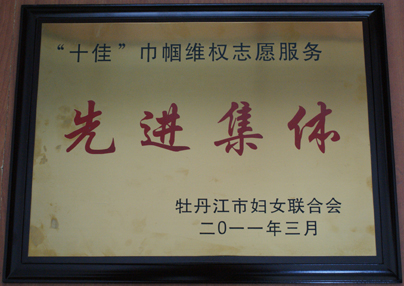 “十佳”巾帼维权志愿服务
先进集体
牡丹江市妇女联合会
二0一一年三月